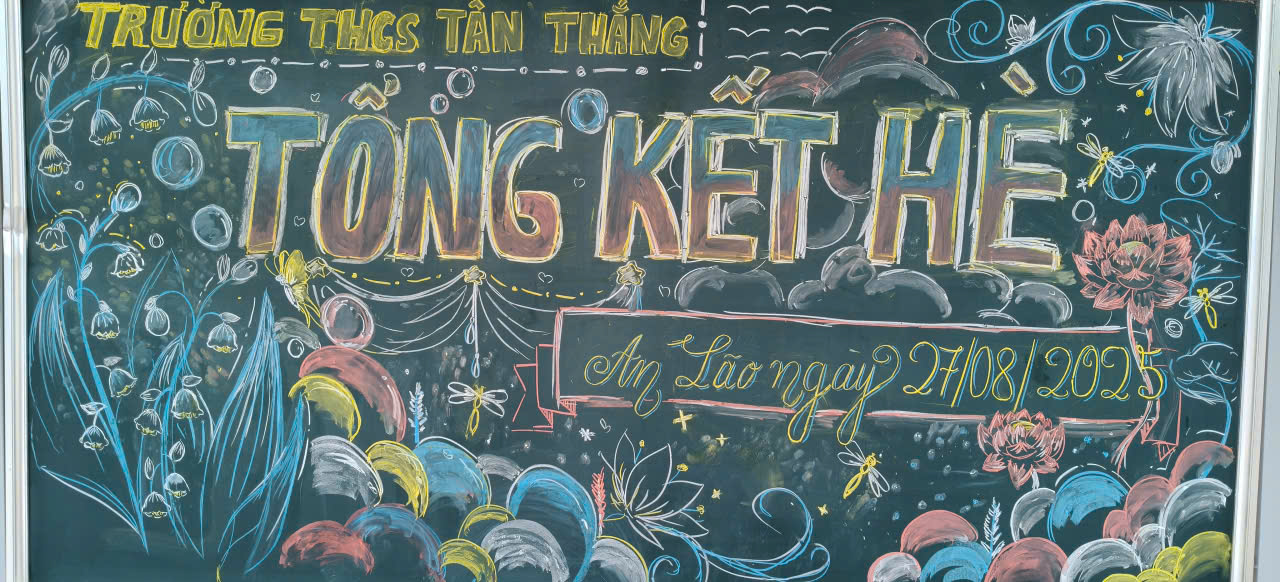 TRƯỜNG THCS TÂN THẮNG
TỔNG KẾT HÈ
An Lão ngày 27/08/2025